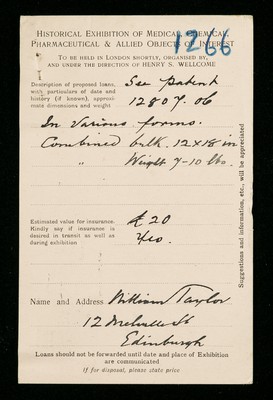 1266
HISTORICAL EXHIBITION OF MEDICAL, CHEMICAL
PHARMACEUTICAL & ALLIED OBJECTS OF INTEREST
TO BE HELD IN LONDON SHORTLY, ORGANISED BY,
AND UNDER THE DIRECTION OF HENRY S. WELLCOME
Description of proposed loans, See patent
with particulars of date and
history (if known), approxi- 12807. 06
mate dimensions and weight
In Various forms.
Combined bulk. 12 x 18 in
" Weight 7-10 lbs.
Estimated value for insurance. £20
Kindly say if insurance is
desired in transit as well as
during exhibition
Name and Address William Taylor
12 Melville St
Edinburgh
Loans should not be forwarded until date and place of Exhibition
are communicated
If for disposal, please state price
Suggestions and information, etc., will be appreciated